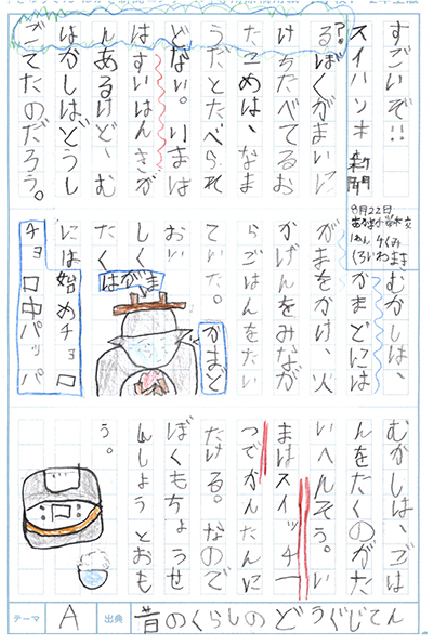 すごいぞ!!
スイハンキ新聞
8月22日
ごはんはどうたける?
ぼくがまいに
ちたべてるお
こめは、なま
だとたべられ
ない。いまは
すいはんきが
あるけど、む
かしはどうし
てたのだろう。
むかしは、
かまどには
がまをかけ、火
かげんをみなが
らごはんをたい
ていた。
おい
しく
たく
には始めチョロ
チョロ中パッパ
はがま
かまど
むかしは、ごは
んをたくのがた
いへんそう。い
まはスイッチ一
つでかんたんに
たける。なので
ぼくもちょうせ
んしょうとおも
う。
テーマ A 出典 昔のくらしのどうぐじてん